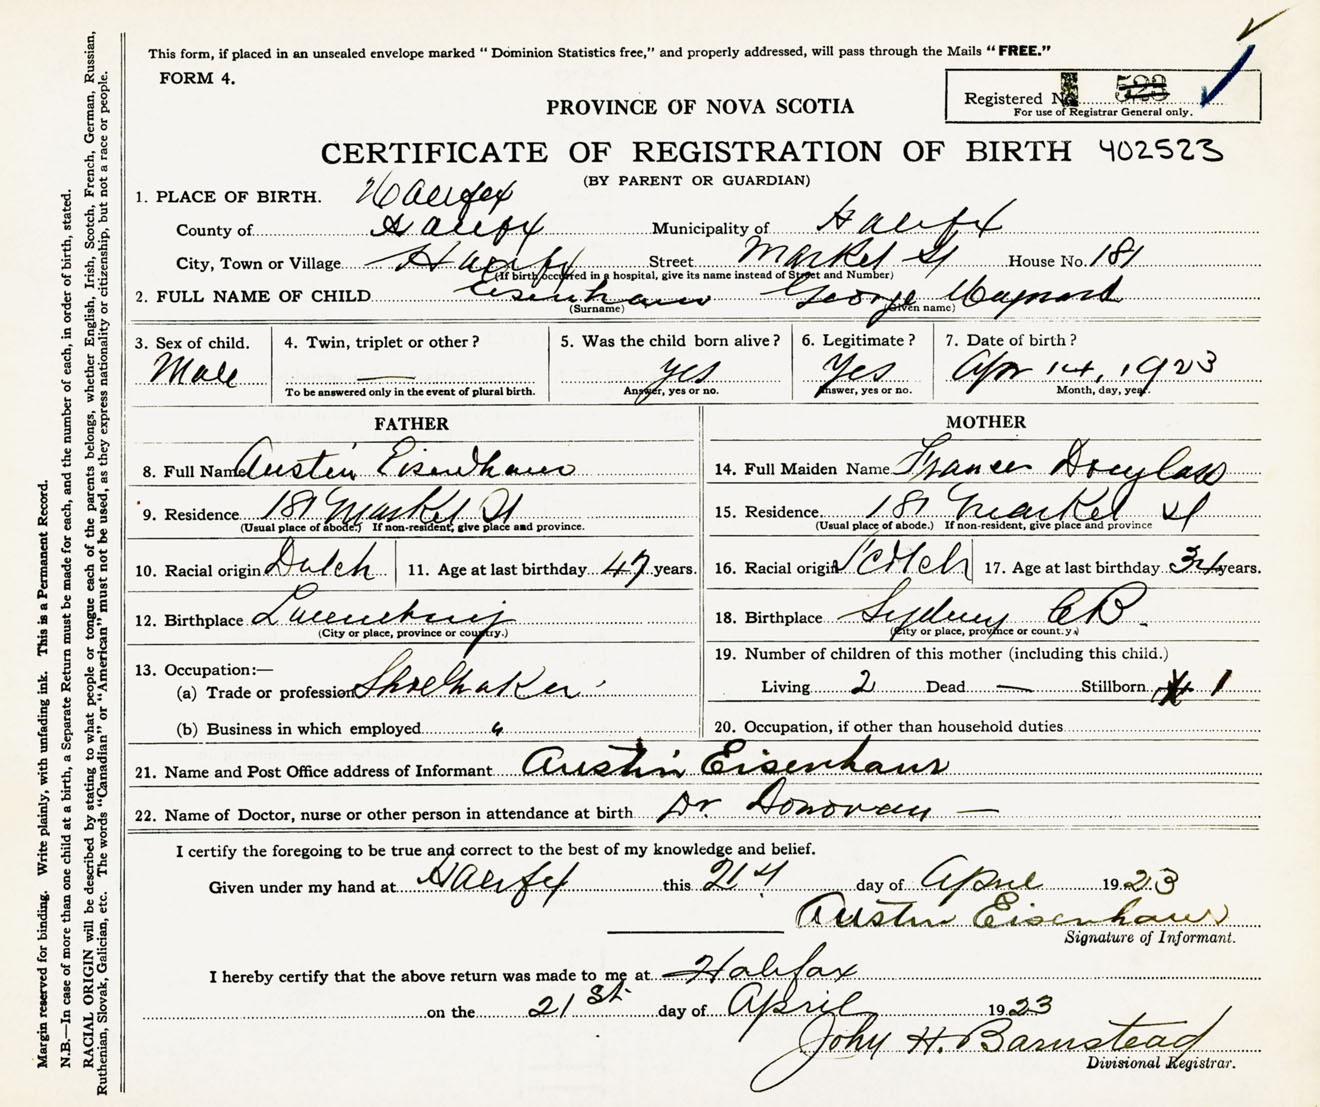 This form, if placed in an unsealed envelope marked "Dominion Statistics free," and properly addressed, will pass through the Mails "FREE."
FORM 4.
Registered No. 523
For use of Registrar General only.
PROVINCE OF NOVA SCOTIA
CERTIFICATE OF REGISTRATION OF BIRTH 402523
(BY PARENT OR GUARDIAN)
1. PLACE OF BIRTH. Halifax
County of Halifax Municipality of Halifax
City, Town or Village Halifax Street Market St House No. 181
(If birth occurred in a hospital, give its name instead of Street and Number)
2. FULL NAME OF CHILD Eisenhaur George Maynard
(Surname) (Given name)
3. Sex of child. 4. Twin, triplet or other? 5. Was the child born alive? 6. Legitimate? 7. Date of birth?
Male — yes Yes Apr 14, 1923
To be answered only in the event of plural birth. Answer, yes or no. Answer, yes or no. Month, day, year.
FATHER
8. Full Name Austin Eisenhaur
9. Residence 181 Market St
(Usual place of abode.) If non-resident, give place and province.
10. Racial origin Dutch 11. Age at last birthday 47 years.
12. Birthplace Lunenburg
(City or place, province or country.)
13. Occupation:—
(a) Trade or profession Shoemaker
(b) Business in which employed "
MOTHER
14. Full Maiden Name Frances Douglass
15. Residence 181 Market St
(Usual place of abode.) If non-resident, give place and province
16. Racial origin Scotch 17. Age at last birthday 34 years.
18. Birthplace Sydney CB.
(City or place, province or count.y.)
19. Number of children of this mother (including this child.)
Living 2 Dead — Stillborn 1
20. Occupation, if other than household duties
21. Name and Post Office address of Informant Austin Eisenhaur
22. Name of Doctor, nurse or other person in attendance at birth Dr. Donovan —
I certify the foregoing to be true and correct to the best of my knowledge and belief.
Given under my hand at Halifax this 21st day of April 1923
Austin Eisenhaur
Signature of Informant.
I hereby certify that the above return was made to me at Halifax
on the 21st. day of April 1923
John H. Barnstead
Divisional Registrar.
Margin reserved for binding. Write plainly, with unfading ink. This is a Permanent Record.
N.B.—In case of more than one child at a birth, a Separate Return must be made for each, and the number of each, in order of birth, stated.
RACIAL ORIGIN will be described by stating to what people or tongue each of the parents belongs, whether English, Irish, Scotch, French, German, Russian,
Ruthenian, Slovak, Galician, etc. The words "Canadian" or "American" must not be used, as they express nationality or citizenship, but not a race or people.